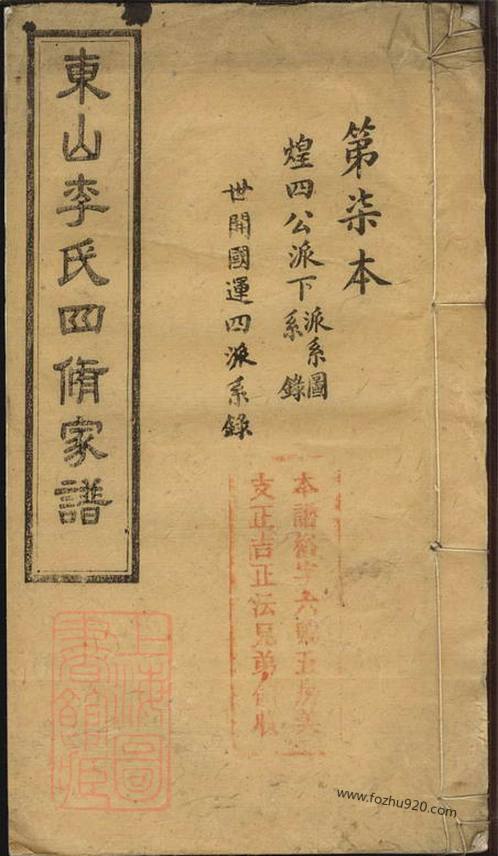 第柒本
煌四公派下派系圖
系錄
世開國運四派系錄
東山李氏四脩家譜
本譜 字六號五房美
支正吉正法兄弟 收
上海圖
書館藏
www.fozhu920.com